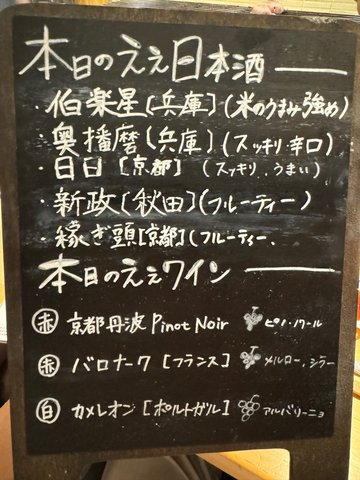 本日のええ日本酒
・伯楽星[兵庫](米のうまみ強め)
・奥播磨(兵庫)(スッキリ.辛口)
・日日[京都](スッキリ.うまい)
・新政[秋田](フルーティー)
・稼ぎ頭[京都](フルーティー.
本日のええワイン
赤 京都丹波 Pinot Noir ピノ・ノワール
赤 バロナーク[フランス] メルロー.シラー
白 カメレオン[ポルトガル] アルバリーニョ